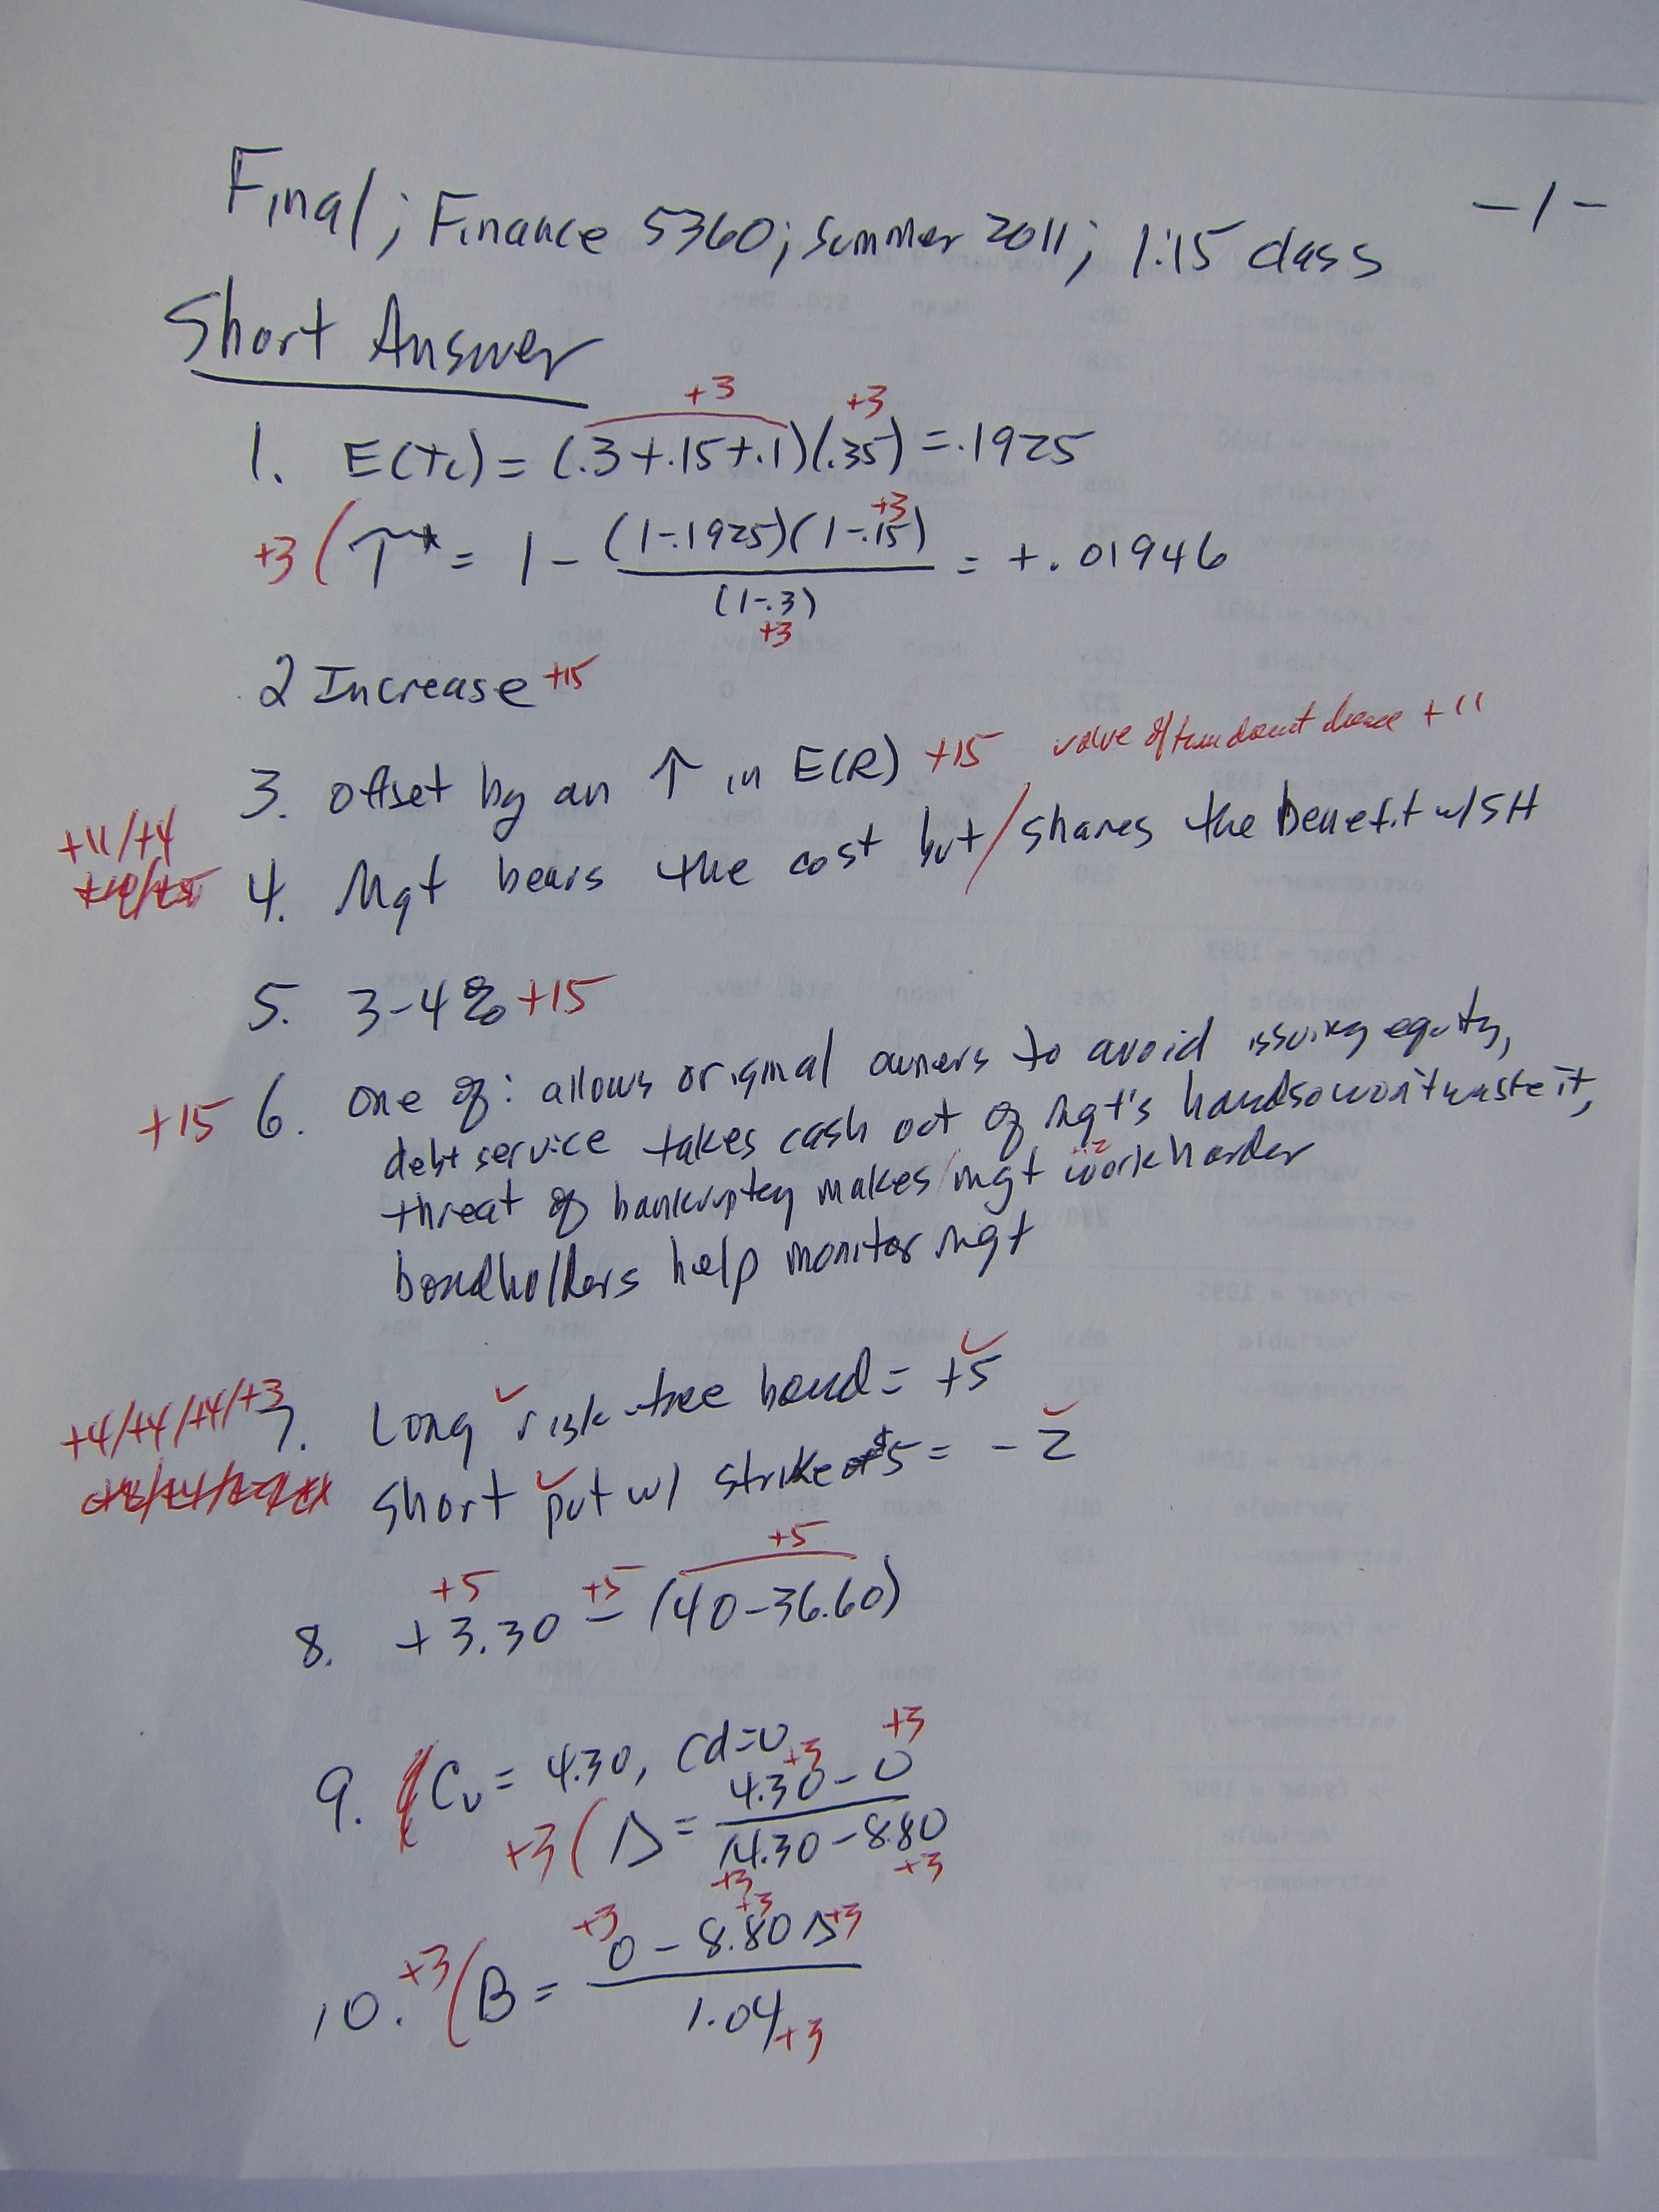 Final; Finance 5360; Summer 2011; 1:15 class
-1-
Short Answer
+3 +3
1. E(Tc) = (.3+.15+.1)(.35) = .1925
+3 ( T* = 1 - (1-.1925)(1-.15) / (1-.3) = +.01946
+3
+3
2 Increase +15
3. Offset by an ↑ in E(R) +15
value of +11
+11/+4
4. Mgt bears the cost but / shares the benefit w/ SH
5. 3-4% +15
+15 6. One of: allows original owners to avoid issuing equity,
debt service takes cash out of mgt's hands so won't waste it,
threat of bankruptcy makes mgt work harder
bondholders help monitor mgt
+4/+4/+4/+3
7. Long risk-free bond = +5
Short put w/ strike of $5 = -2
+5 +5 +5
8. +3.30 - (40-36.60)
9. Cu = 4.30, Cd=0
+3 +3
+3 ( Δ = 4.30-0 / 14.30-8.80
+3 +3
+3 +3 +3
10. +3 ( B = 0-8.80Δ / 1.04
+3